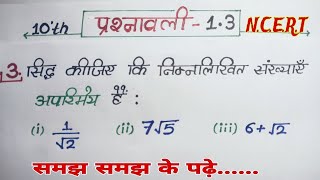 10'th प्रश्नावली - 1.3 N.C.ERT
3. सिद्ध कीजिए कि निम्नलिखित संख्याएँ
अपरिमेय हैं :
(i) 1/√2 (ii) 7√5 (iii) 6+√2
समझ समझ के पढ़े......